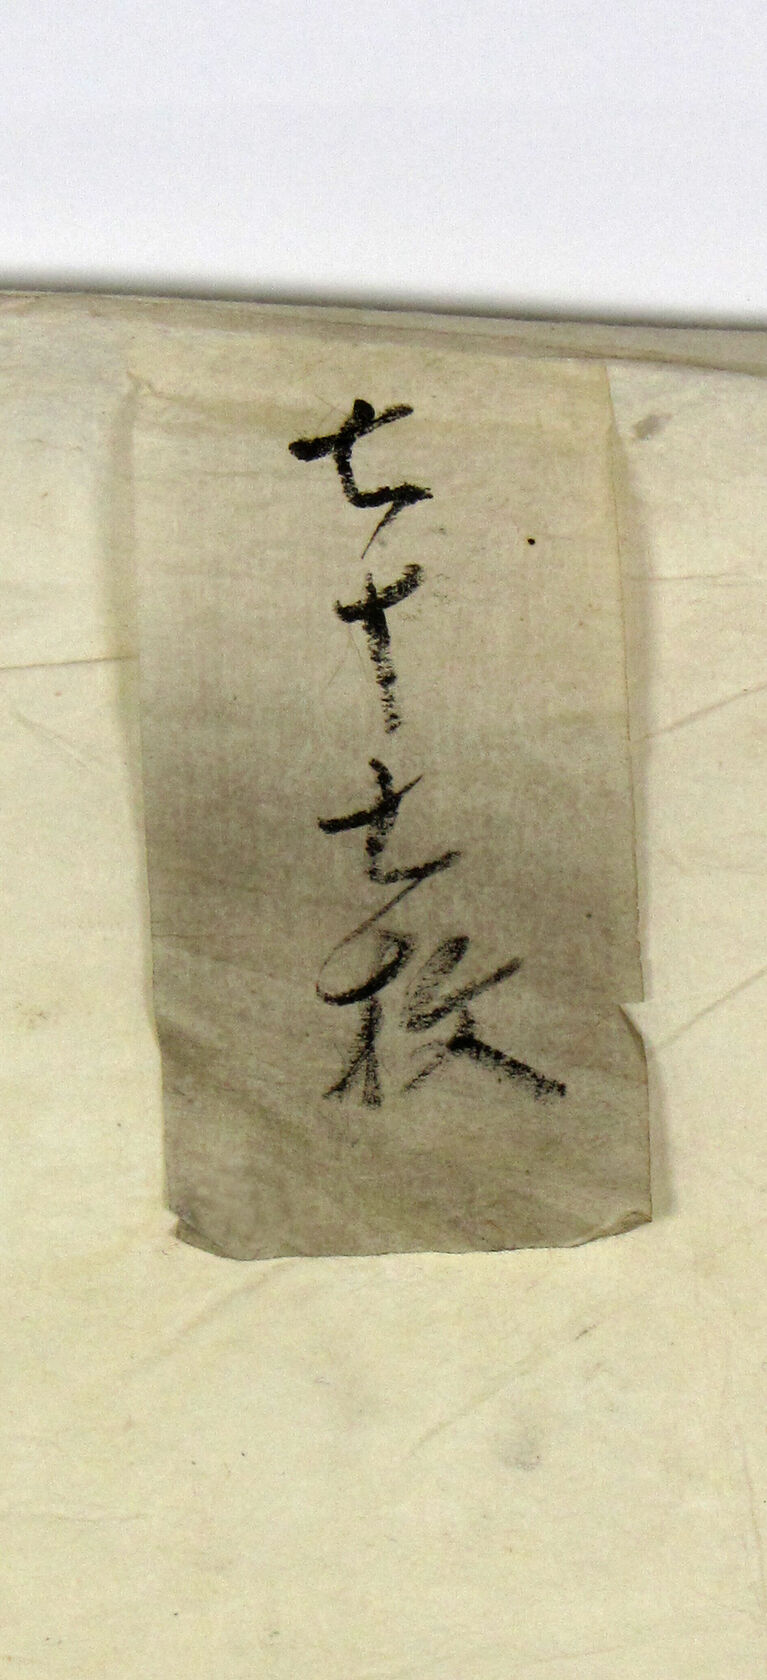 七十七枚